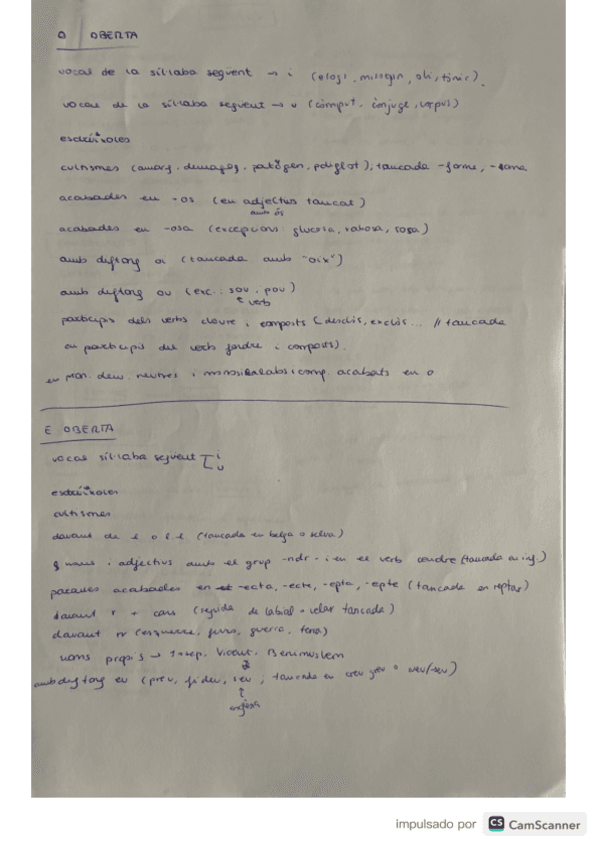 O OBERTA
vocal de la síl·laba següent → i (elogi, misogin, oli, tònic).
vocal de la síl·laba següent → u (còmput, cònjuge, corpus)
esdrúixoles
cultismes (amorf, demagog, patògen, políglot); tancada -forme, -
acabades en -os (en adjectius tancat)
amb ós
acabades en -osa (excepcions: glucosa, rabosa, rosa)
amb diftong oi (tancada amb "oix")
amb diftong ou (exc.: sou, pou)
↑ verb
participis dels verbs cloure i composts (desclòs, exclòs... // tancada
en participis del verb fondre i composts).
en mon. dem. neutres i monosíl·labs i comp. acabats en o
E OBERTA
vocal síl·laba següent [ i u
esdrúixoles
cultismes
davant de l o l·l (tancada en belga o selva)
noms i adjectius amb el grup -ndr- i en el verb cendre (tancada en inf.)
paraules acabades en -ecta, -ecte, -epta, -epte (tancada en reptar)
davant r + cons (seguida de labial o velar tancada)
davant rr (esquerra, ferro, guerra, terra)
noms propis → Josep, Vicent, Benimuslem
amb diftong eu (preu, fideu, seu; tancada en creu, jeu o meu/seu)
↑
església